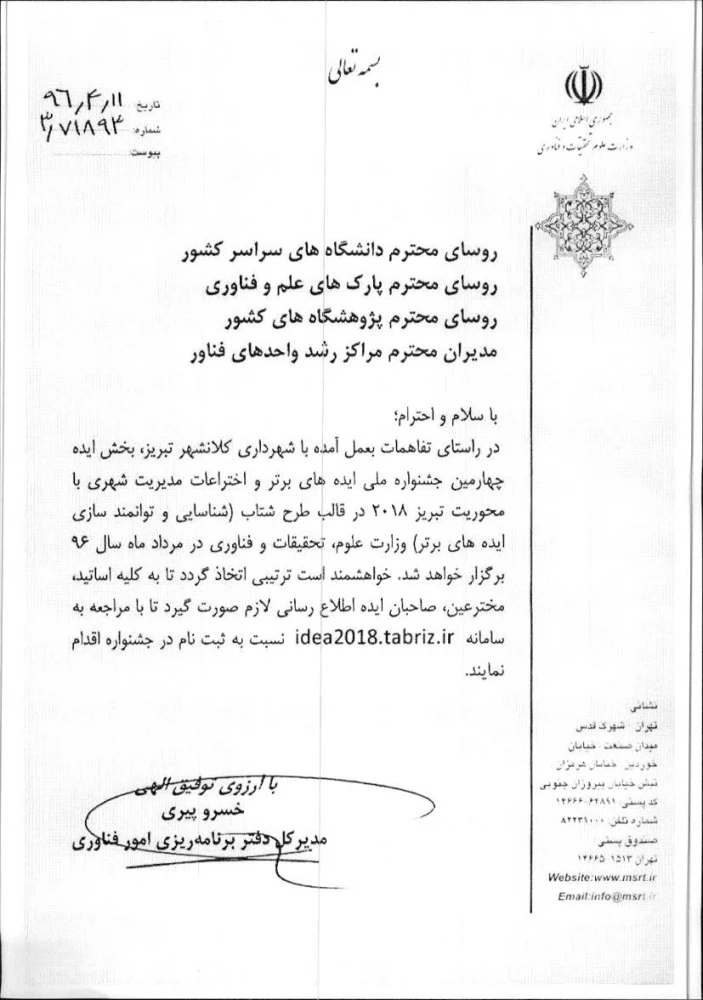 بسمه تعالی
جمهوری اسلامی ایران
وزارت علوم تحقیقات و فناوری
تاریخ: ۹۶٫۴٫۱۱
شماره: ۳٫۷۱۸۹۴
پیوست:
روسای محترم دانشگاه های سراسر کشور
روسای محترم پارک های علم و فناوری
روسای محترم پژوهشگاه های کشور
مدیران محترم مراکز رشد واحدهای فناور
با سلام و احترام؛
در راستای تفاهمات بعمل آمده با شهرداری کلانشهر تبریز، بخش ایده
چهارمین جشنواره ملی ایده های برتر و اختراعات مدیریت شهری با
محوریت تبریز ۲۰۱۸ در قالب طرح شتاب (شناسایی و توانمند سازی
ایده های برتر) وزارت علوم، تحقیقات و فناوری در مرداد ماه سال ۹۶
برگزار خواهد شد. خواهشمند است ترتیبی اتخاذ گردد تا به کلیه اساتید،
مخترعین، صاحبان ایده اطلاع رسانی لازم صورت گیرد تا با مراجعه به
سامانه idea2018.tabriz.ir نسبت به ثبت نام در جشنواره اقدام
نمایند.
با آرزوی توفیق الهی
خسرو پیری
مدیر کل دفتر برنامه‌ریزی امور فناوری
نشانی
تهران شهرک قدس
میدان صنعت خیابان
خوردین خیابان هرمزان
نبش خیابان پیروزان جنوبی
کد پستی ۱۴۶۶۶-۶۴۸۹۱
شماره تلفن ۸۲۲۳۱۰۰۰
صندوق پستی
تهران ۱۵۱۳ ۱۴۶۶۵
Website:www.msrt.ir
Email:info@msrt.ir